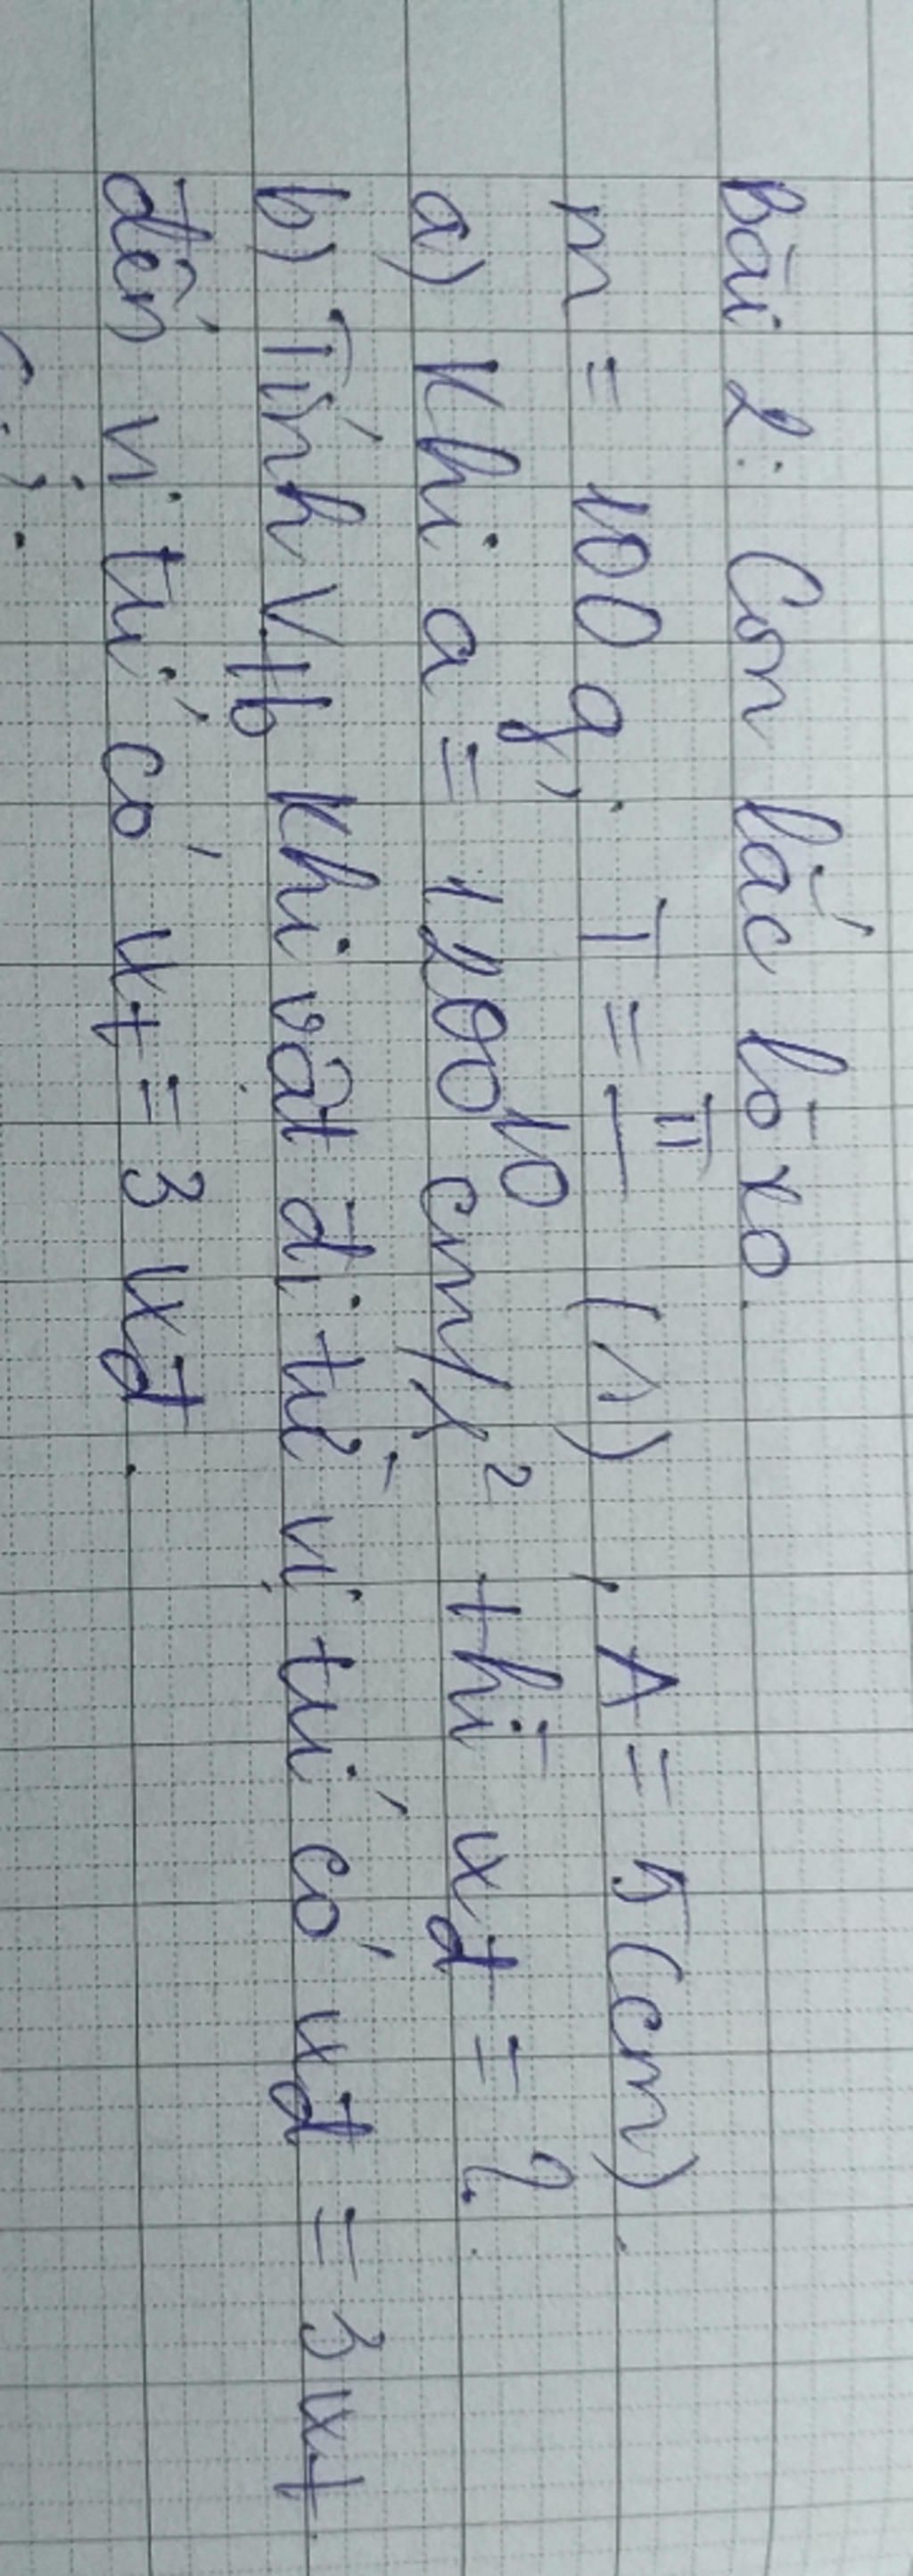 Bài 2: Con lắc lò xo.
m = 100 g; T = π/10 (s), A = 5 (cm).
a) Khi a = 1200 cm/s² thì wđ = ?
b) Tính Vtb khi vật đi từ vị trí có wđ = 3wt
đến vị trí có wt = 3wđ.